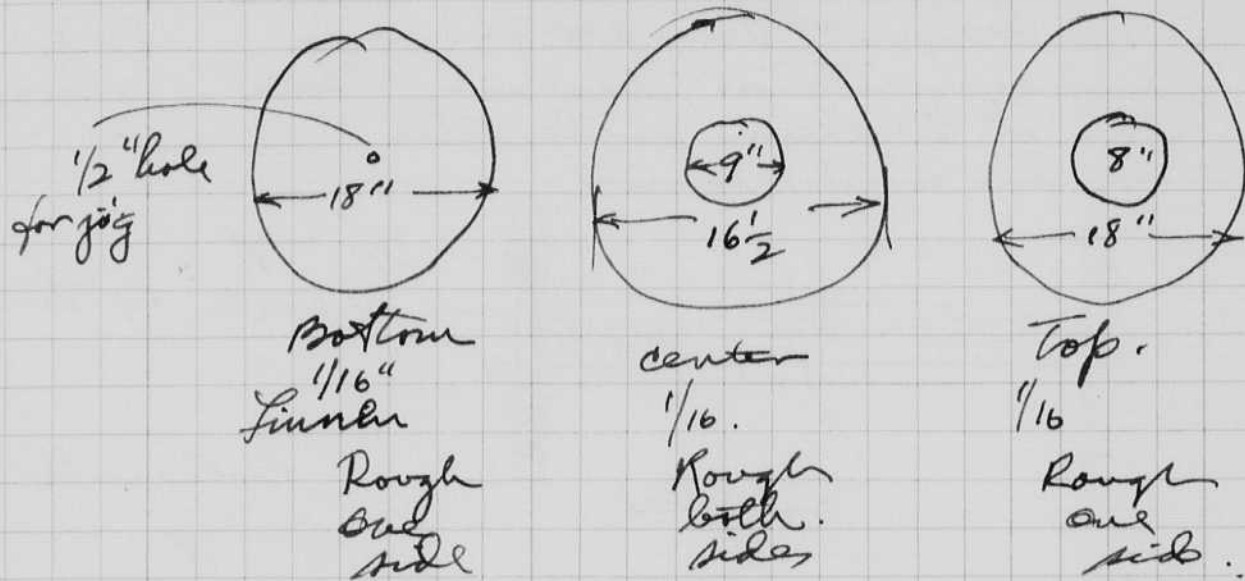 1/2" hole
for jig
18"
Bottom
1/16"
Rough
one
side
9"
16 1/2
center
1/16.
Rough
both.
sides
8"
18"
Top.
1/16
Rough
one
side.